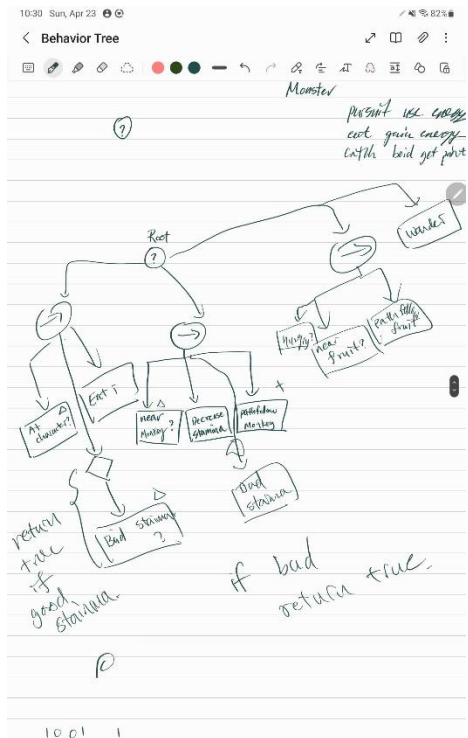 10:30 Sun, Apr 23
82%
Behavior Tree
Monster
pursuit use energy
eat gain energy
catch bird get point
?
Root
?
wander
Hungry?
near
fruit?
pathfollow
fruit
At
character?
Eat i
near
Monkey?
Decrease
stamina
pathfollow
Monkey
+
Bad stamina
?
Bad
stamina
return
true
if
good
stamina.
if bad
return true.